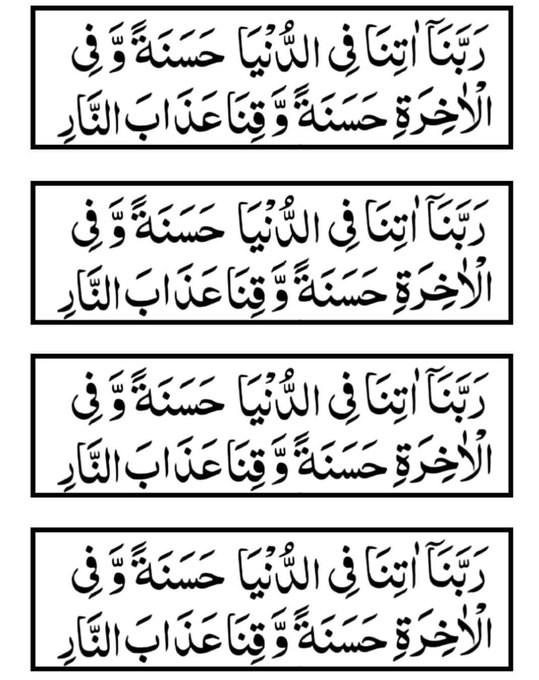 رَبَّنَآ اٰتِنَا فِى الدُّنْيَا حَسَنَةً وَّ فِى
الْاٰخِرَةِ حَسَنَةً وَّ قِنَا عَذَابَ النَّارِ
رَبَّنَآ اٰتِنَا فِى الدُّنْيَا حَسَنَةً وَّ فِى
الْاٰخِرَةِ حَسَنَةً وَّ قِنَا عَذَابَ النَّارِ
رَبَّنَآ اٰتِنَا فِى الدُّنْيَا حَسَنَةً وَّ فِى
الْاٰخِرَةِ حَسَنَةً وَّ قِنَا عَذَابَ النَّارِ
رَبَّنَآ اٰتِنَا فِى الدُّنْيَا حَسَنَةً وَّ فِى
الْاٰخِرَةِ حَسَنَةً وَّ قِنَا عَذَابَ النَّارِ